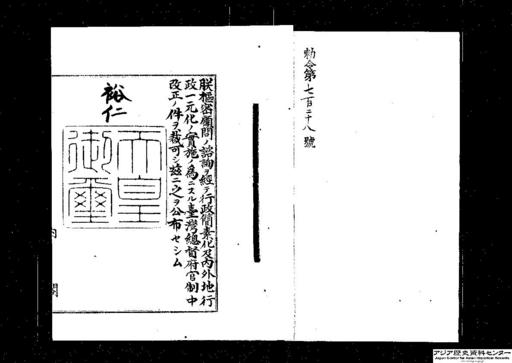 勅令第七百二十八號
朕樞密顧問ノ諮詢ヲ經テ行政簡素化及內外地行
政一元化ノ實施ノ爲ニスル臺灣總督府官制中
改正ノ件ヲ裁可シ玆ニ之ヲ公布セシム
裕仁
天皇
御璽
內閣
アジア歴史資料センター
Japan Center for Asian Historical Records